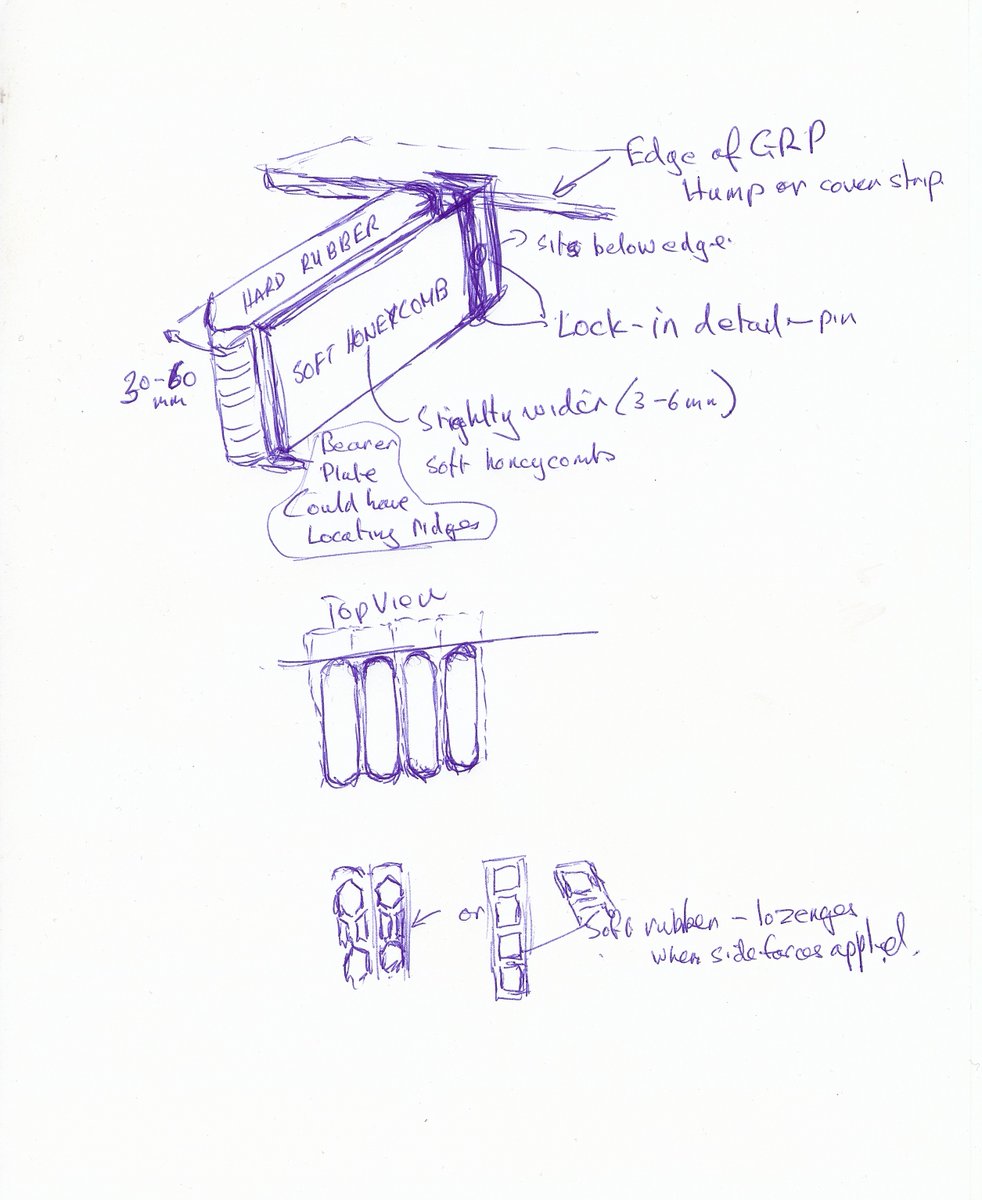 Edge of GRP
Hump or cover strip
HARD RUBBER
Sits below edge.
SOFT HONEYCOMB
Lock-in detail - pin
30-60
mm
Slightly wider (3-6mm)
soft honeycomb
Bearer
Plate
Could have
Locating Ridges
Top View
or
Soft rubber - lozenges
when side forces applied.